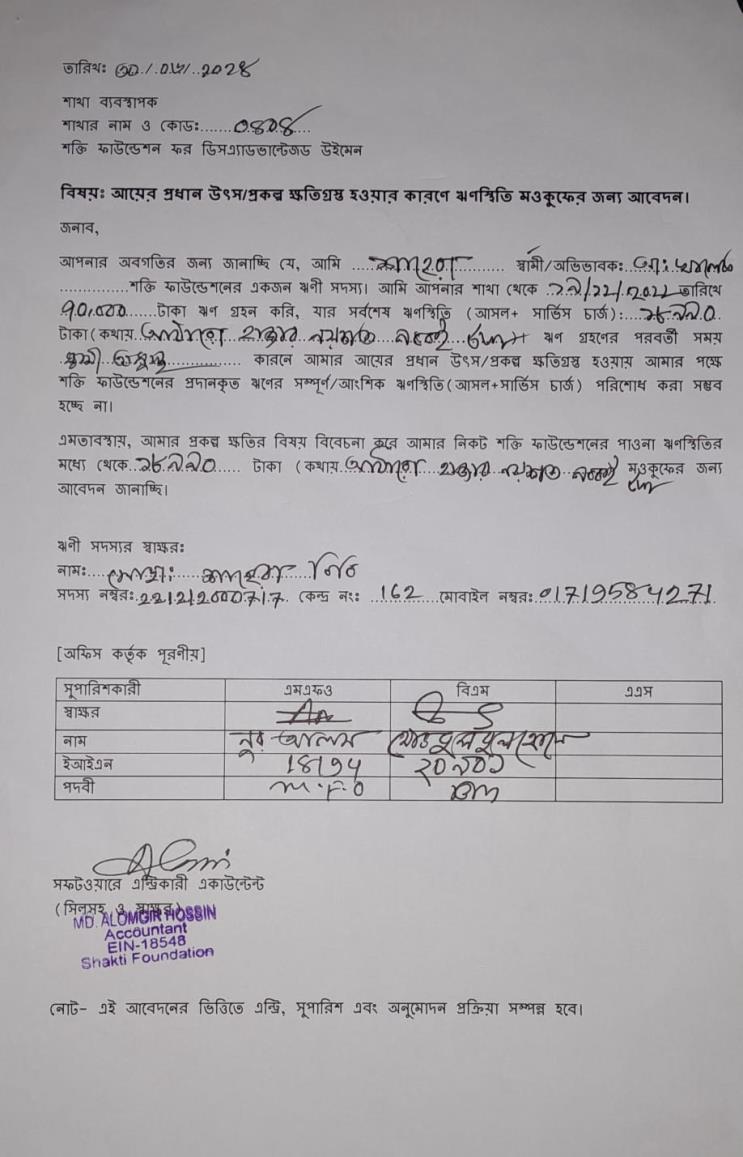 তারিখঃ ৩০/০৬/২০২৪
শাখা ব্যবস্থাপক
শাখার নাম ও কোডঃ.......০৪০৪....
শক্তি ফাউন্ডেশন ফর ডিসএ্যাডভান্টেজড উইমেন
বিষয়ঃ আয়ের প্রধান উৎস/প্রকল্প ক্ষতিগ্রস্থ হওয়ার কারণে ঋণস্থিতি মওকুফের জন্য আবেদন।
জনাব,
আপনার অবগতির জন্য জানাচ্ছি যে, আমি ............ স্বামী/অভিভাবক:.. মো:
...............শক্তি ফাউন্ডেশনের একজন ঋনী সদস্য। আমি আপনার শাখা থেকে .২৯/১১/.২০২২ তারিখে
৭০,০০০.....টাকা ঋন গ্রহন করি, যার সর্বশেষ ঋণস্থিতি (আসল+ সার্ভিস চার্জ):....১৮.৯৯.০.
টাকা (কথায়. আঠারো হাজার নয়শত নব্বই টাকা ঋন গ্রহণের পরবর্তী সময়
স্বামী অসুস্থ............ কারনে আমার আয়ের প্রধান উৎস/প্রকল্প ক্ষতিগ্রস্থ হওয়ায় আমার পক্ষে
শক্তি ফাউন্ডেশনের প্রদানকৃত ঋণের সম্পূর্ণ/আংশিক ঋণস্থিতি (আসল+সার্ভিস চার্জ) পরিশোধ করা সম্ভব
হচ্ছে না।
এমতাবস্থায়, আমার প্রকল্প ক্ষতির বিষয় বিবেচনা করে আমার নিকট শক্তি ফাউন্ডেশনের পাওনা ঋণস্থিতির
মধ্যে থেকে..১৮.৯৯০...... টাকা (কথায়. আঠারো হাজার নয়শত নব্বই মওকুফের জন্য
টাকা
আবেদন জানাচ্ছি।
ঋনী সদস্যর স্বাক্ষরঃ
নামঃ....মোছা:..... বিবি
সদস্য নম্বরঃ.22121200071.7. কেন্দ্র নংঃ ...162 ...মোবাইল নম্বরঃ.01719584271.
[অফিস কর্তৃক পূরনীয়]
সুপারিশকারী এমএফও বিএম এএস
স্বাক্ষর
নাম নুর আলম
ইআইএন 18194 ২০৯০১
পদবী M.F.O BM
সফটওয়্যারে এন্ট্রিকারী একাউন্টেন্ট
(সিলসহ ও স্বাক্ষর)
MD. ALOMGIR HOSSIN
Accountant
EIN-18548
Shakti Foundation
নোট- এই আবেদনের ভিত্তিতে এন্ট্রি, সুপারিশ এবং অনুমোদন প্রক্রিয়া সম্পন্ন হবে।